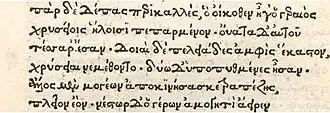 πὰρ δὲ δέπας περικαλλές, ὃ οἴκοθεν ἦγ' ὁ γεραιὸς
χρυσείοις ἥλοισι πεπαρμένον· οὔατα δ' αὐτοῦ
τέσσαρ' ἔσαν· δοιαὶ δὲ πελειάδες ἀμφὶς ἕκαστον,
χρύσειαι νεμέθοντο· δύω δ' ὑπὸ πυθμένες ἦσαν·
ἄλλος μὲν μογέων ἀποκινήσασκε τραπέζης,
πλεῖον ἐόν· νέστωρ δ' ὁ γέρων ἀμογητὶ ἄειρεν